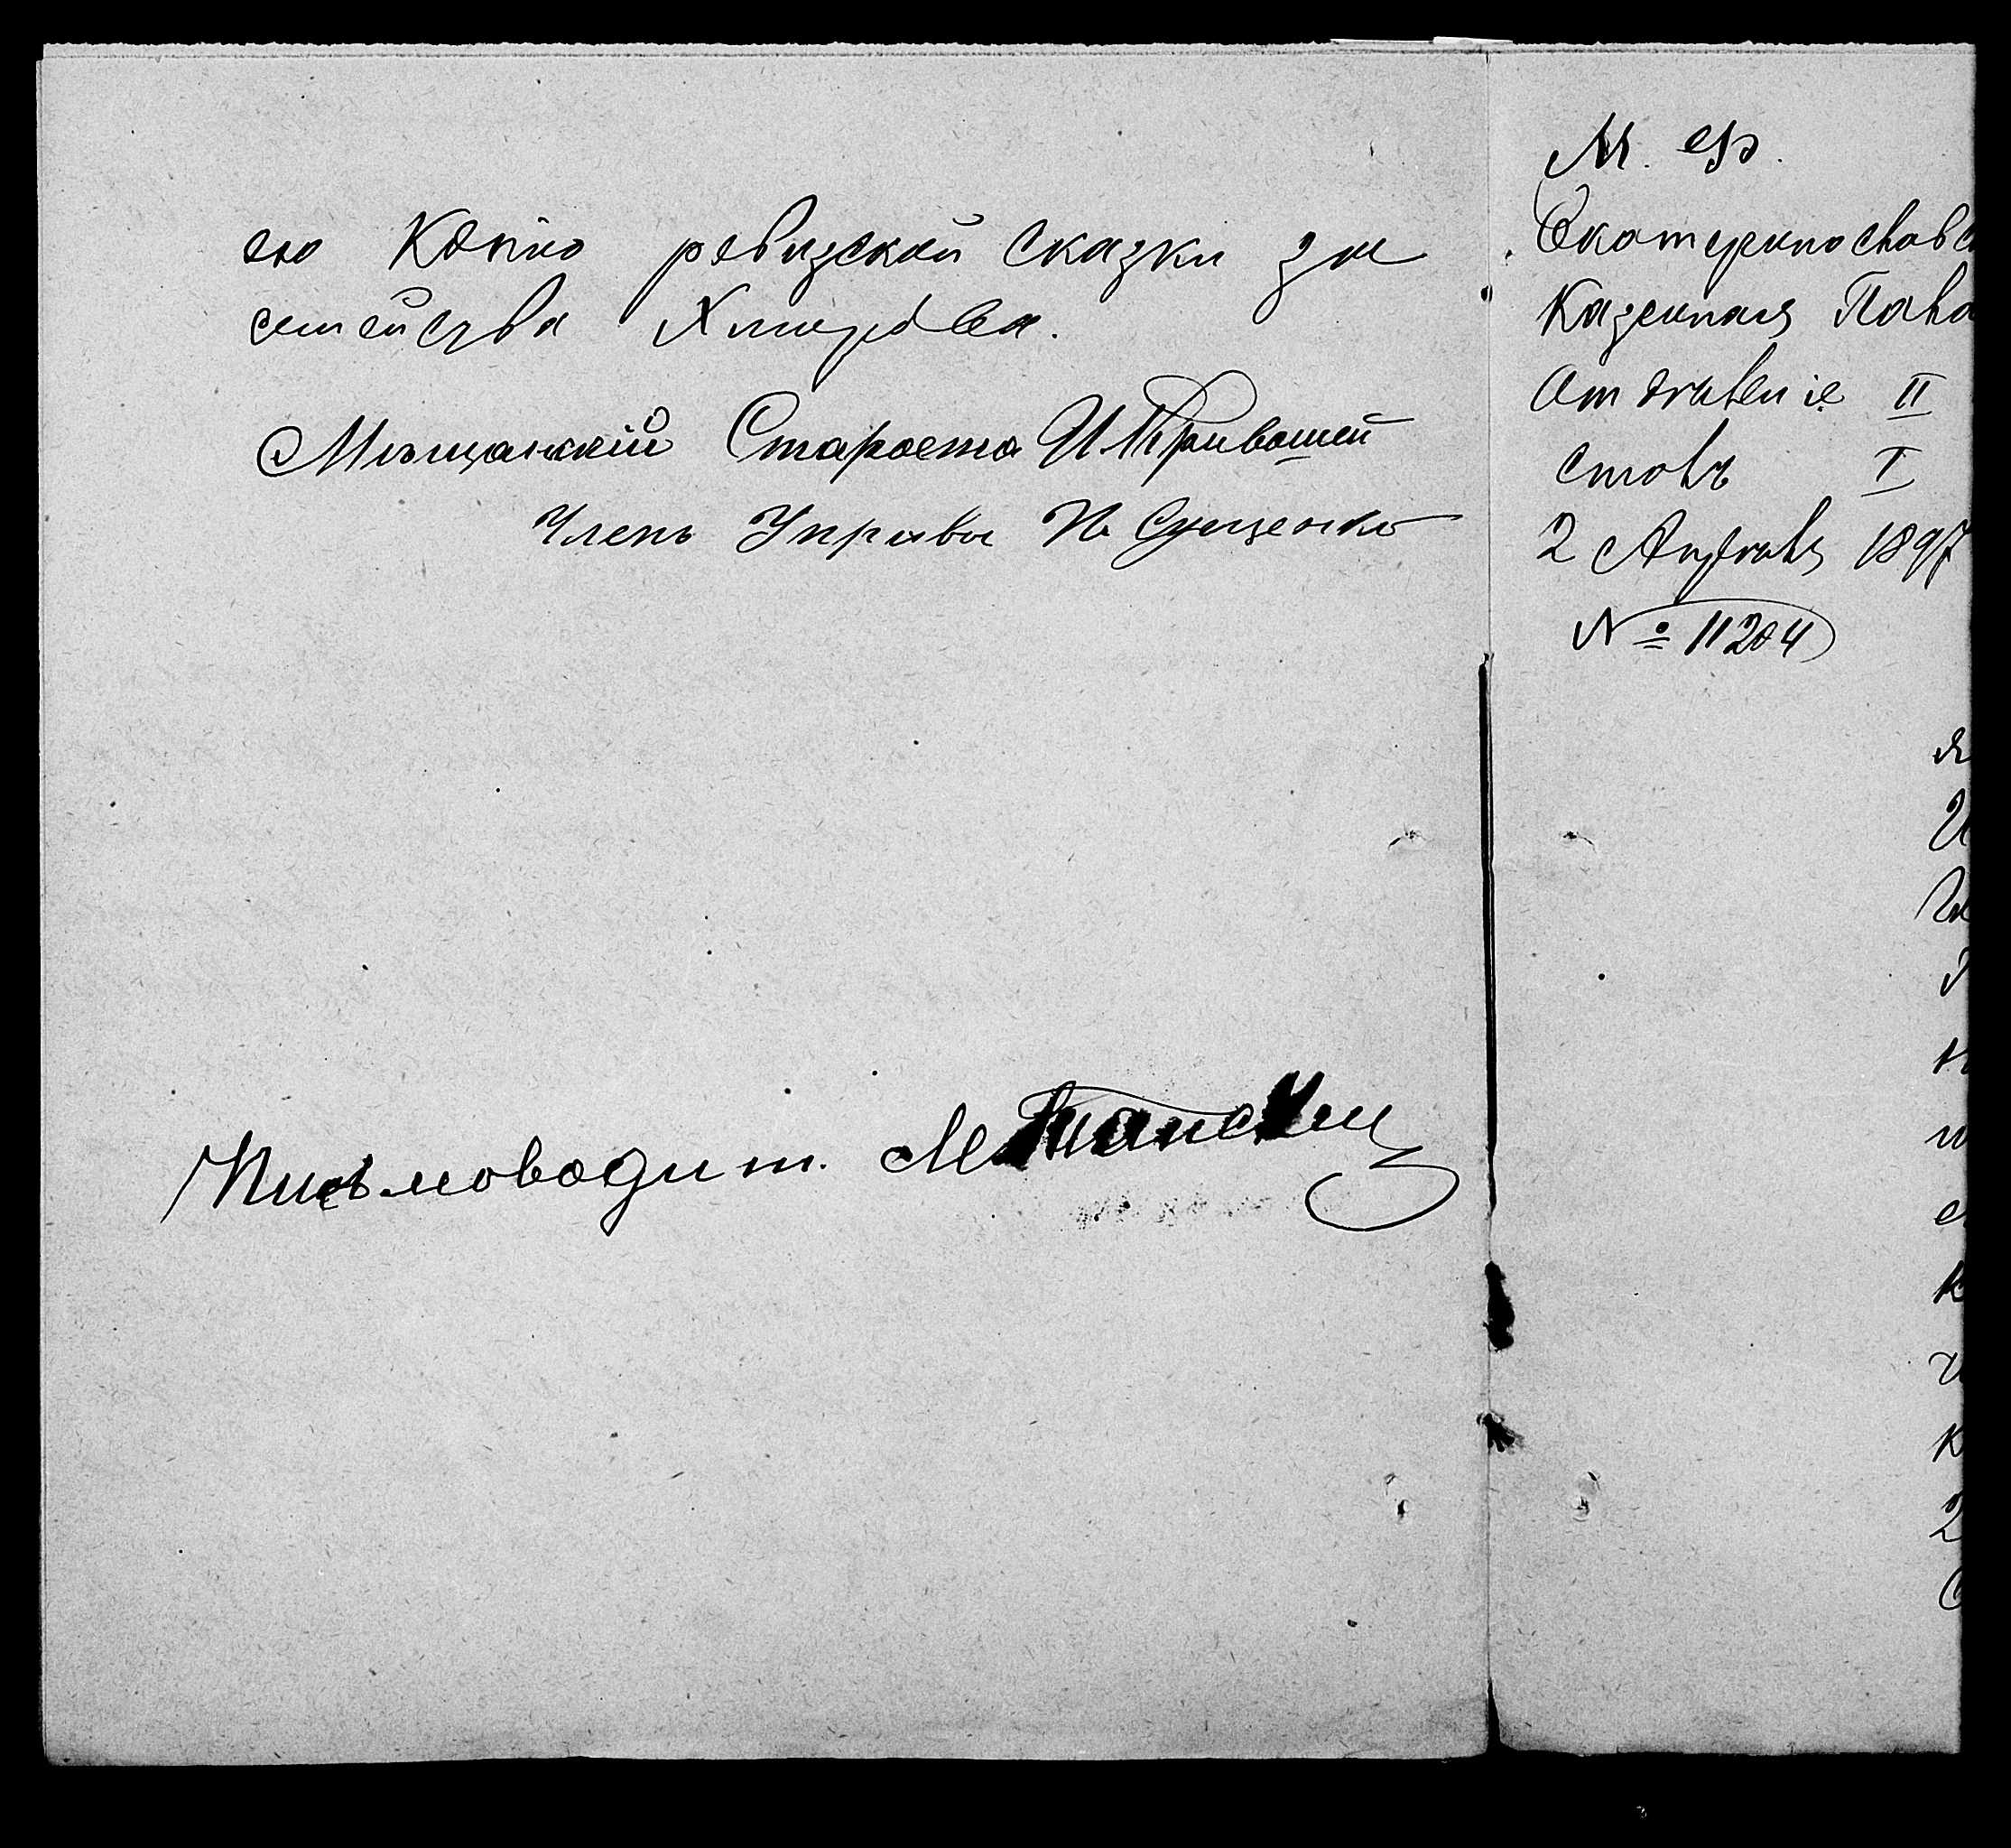 ею копию ревизской сказки за
семейства Хмарова.
Мѣщанскій Староста И Кривошей
Членъ Управы И. Сущенко
Письмоводит. М
М. Ф.
Екатеринославс
Казенная Пала
Отдѣленіе II
Столъ I
2 Апрѣля 1897
№ 11204